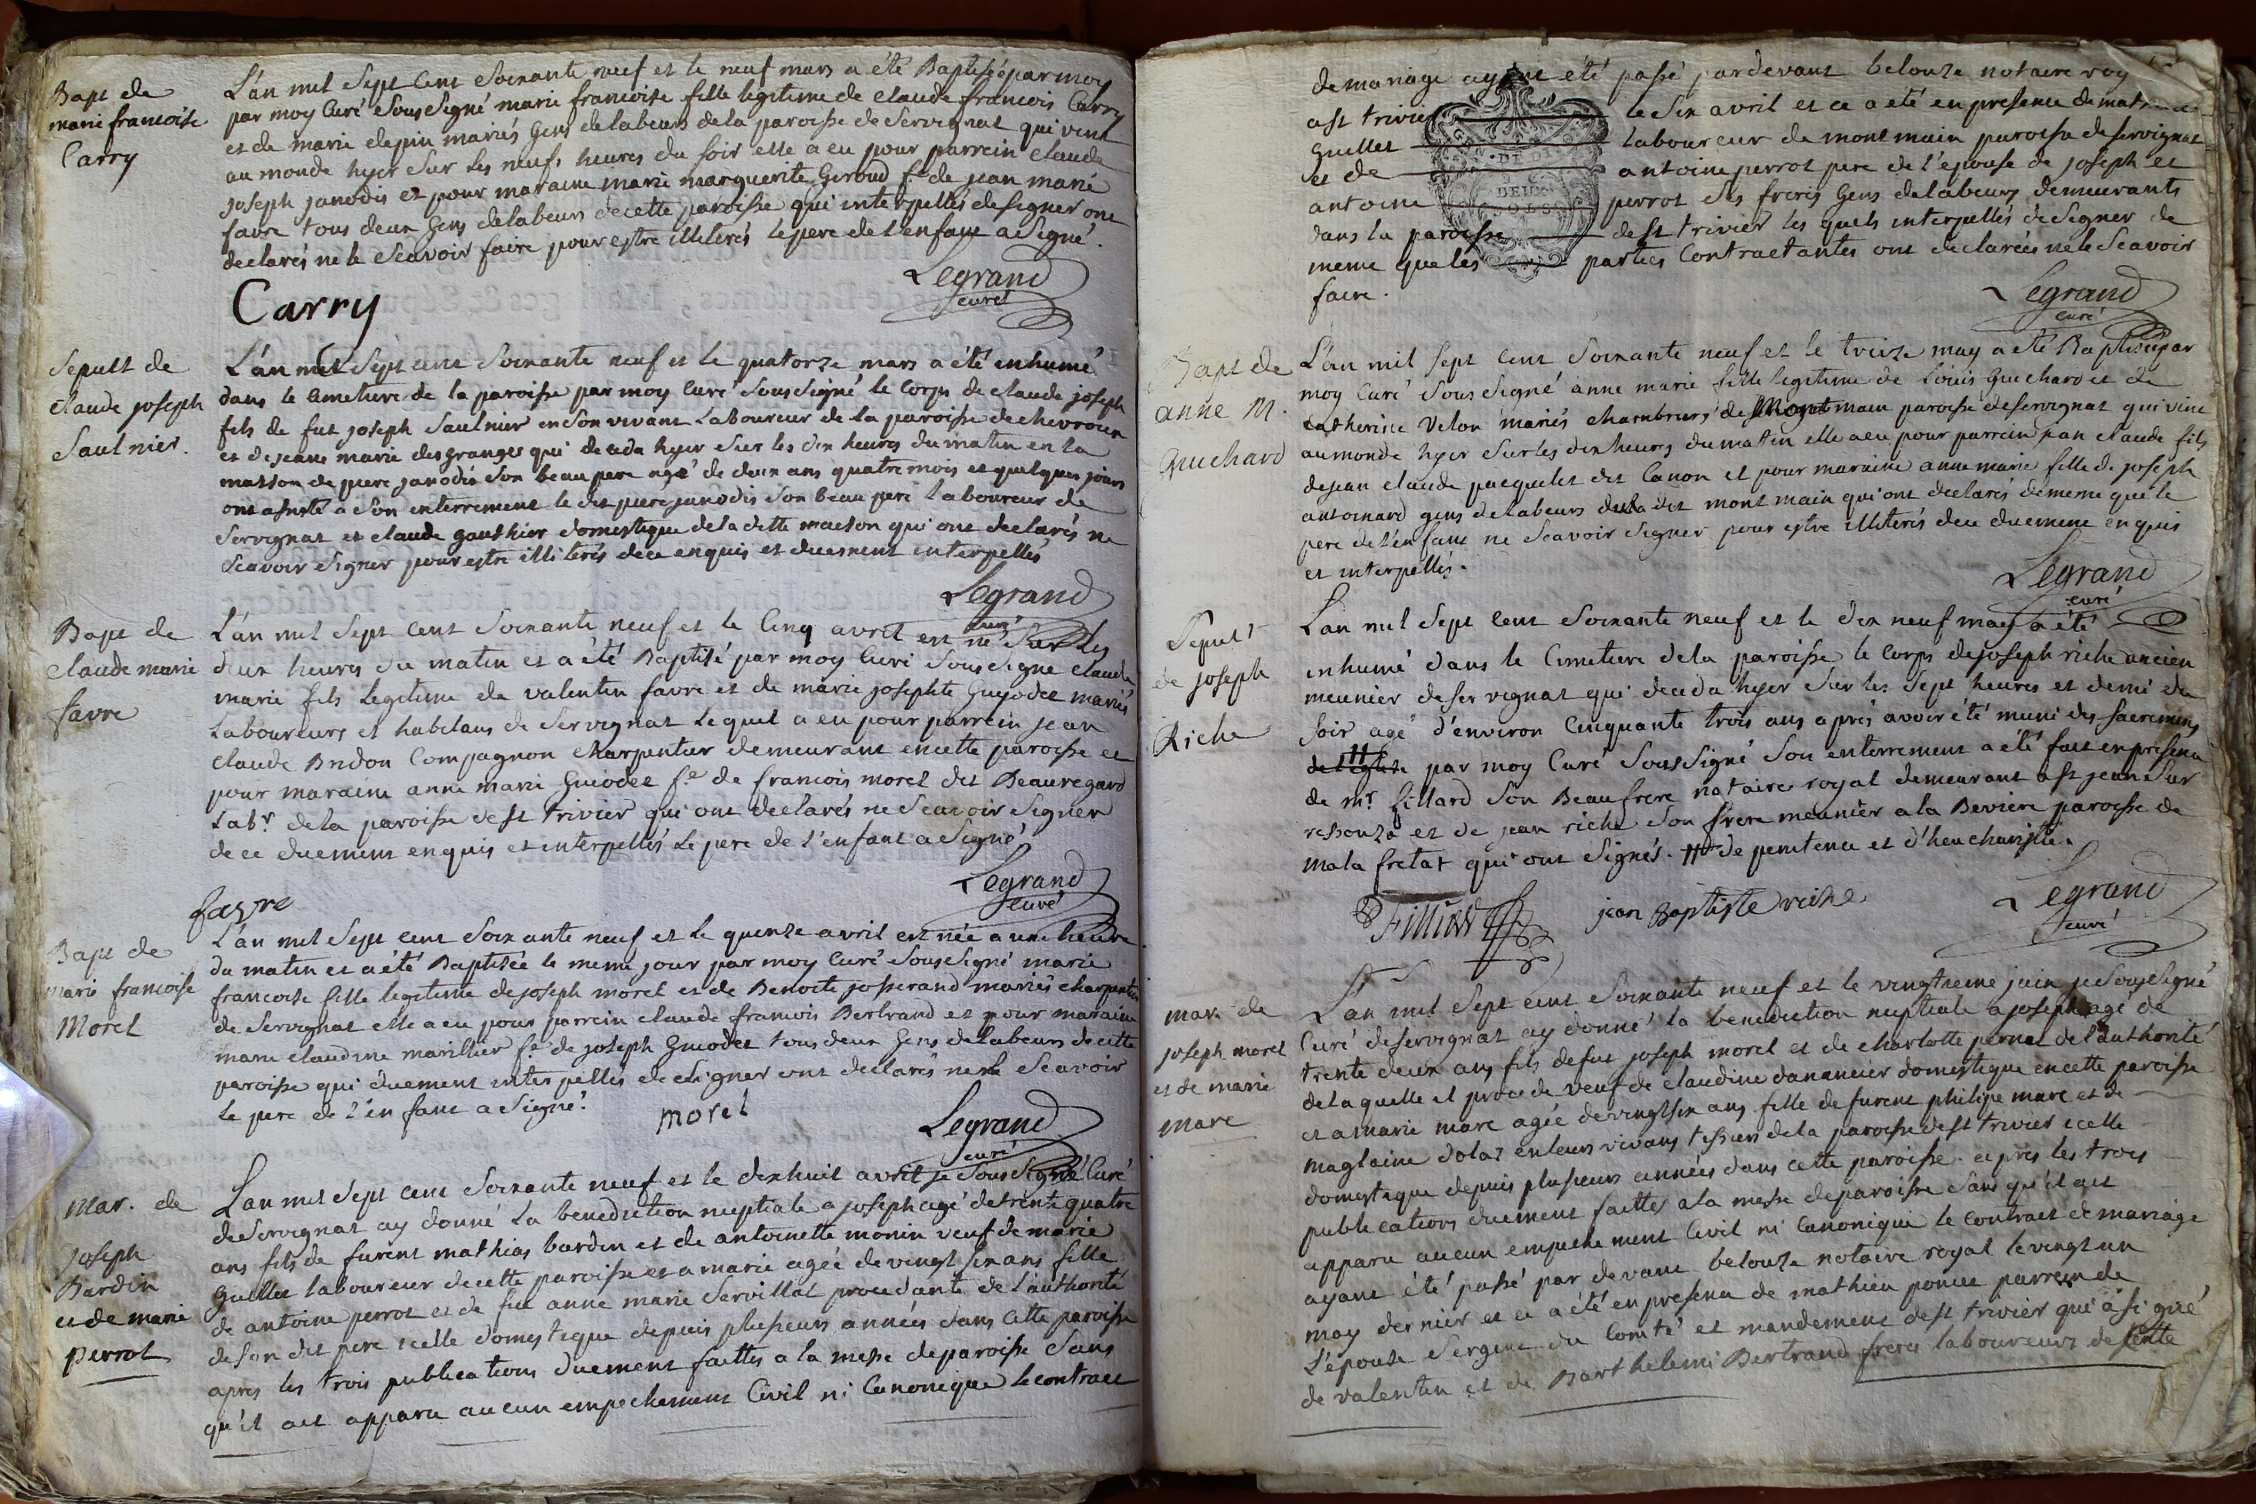 Bapt de
marie francoise
Carry
L'an mil Sept Cent Soixante neuf et le neuf mars a été Baptisée par moy
par moy Curé Sous Signé marie francoise fille legitime de claude francois Carry
et de marie depin mariés Gens de labeurs de la paroisse de Servignat qui vint
au monde hyer Sur les neufs heures du soir elle a eu pour parrein claude
joseph janodis et pour maraine marie marguerite Giroud f.e de jean marie
favre tous deux Gens de labeurs de cette paroisse qui interpellés de signer ont
declarés ne le Scavoir faire pour estre illiterés le pere de l'enfant a Signé.
Legrand
curé
Carry
Sepult de
claude joseph
Saulnier.
L'an mil Sept cent Soixante neuf et le quatorze mars a été enhumé
dans le Cimetiere de la paroisse par moy Curé Sous Signé le Corps de claude joseph
fils de fut joseph Saulnier en Son vivant Laboureur de la paroisse de chevroux
et de jeane marie des granges qui deceda hyer Sur les dix heures du matin en la
maison de piere janodis Son beau pere agé de deux ans quatre mois et quelques jours
ont assisté a Son enterrement le dit piere janodis Son beau pere laboureur de
Servignat et claude gauthier domestique de la ditte maison qui ont declarés ne
Scavoir Signer pour estre illiterés de ce enquis et duement interpellés
Legrand
curé
Bapt de
claude marie
favre
L'an mil Sept cent Soixante neuf et le Cinq avril est né Sur les
deux heures du matin et a été Baptisé par moy Curé Sous Signé claude
marie fils Legitime de valentin favre et de marie josephte Guyodet mariés
Laboureurs et habitans de Servignat Lequel a eu pour parrein jean
claude Bridon Compagnon charpentier demeurant en cette paroisse et
pour maraine anne marie Guiodet f.e de francois morel dit Beauregard
Lab.r de la paroisse de st trivier qui ont declarés ne Scavoir Signer
de ce duement enquis et interpellés Le pere de l'enfant a Signé
Legrand
curé
favre
Bapt de
marie francoise
Morel
L'an mil Sept cent Soixante neuf et le quinze avril est née a une heure
du matin et a été Baptisée le meme jour par moy Curé Sous Signé marie
francoise fille legitime de joseph morel et de Benoite josserand mariés charpentier
de Servignat elle a eu pour parrein claude francois Bertrand et pour maraine
marie claudine marillier f.e de joseph Guiodet tous deux Gens de labeurs de cette
paroisse qui duement interpellés de Signer ont declarés ne le Scavoir
le pere de l'enfant a Signé.
morel
Legrand
curé
mar. de
joseph
Bardin
et de marie
perrot
L'an mil Sept cent Soixante neuf et le dix huit avril je Sous Signé Curé
de Servignat ay donné La benediction nuptiale a joseph agé de trente quatre
ans fils de furent mathias bardin et de antoinette monin veuf de marie
Guillet laboureur de cette paroisse et a marie agée de vingt six ans fille
de antoine perrot et de fut anne marie Servillat procedante de l'authorité
de son dit pere icelle domestique depuis plusieurs années dans Cette paroisse
apres les trois publications duement faittes a la messe de paroisse Sans
qu'il ait apparu aucun empechement Civil ni Canonique le contract
de mariage ayant été passé pardevant belouze notaire roy
a st trivier le Six avril et ce a été en presence de
Guillet laboureur de mont main paroisse de servignat
et de antoine perrot pere de l'epouse de joseph et
antoine perrot Ses freres Gens de labeurs demeurants
dans la paroisse de st trivier les quels interpellés de Signer de
meme que les parties Contractantes ont declarées ne le Scavoir
faire.
Legrand
curé
Bapt de
anne M.
Guichard
L'an mil Sept Cent Soixante neuf et le treize may a été Baptisée par
moy Curé Sous Signé anne marie fille legitime de Loüis Guichard et de
Catherine Velon mariés chambreurs de Mont main paroisse de servignat qui vint
au monde hyer Sur les dix heures du matin elle a eu pour parrein jean claude fils
de jean claude paequelet dit Canon et pour maraine anne marie fille de joseph
antoinard gens de labeurs du dit mont main qui ont declarés de meme que le
pere de l'enfant ne Scavoir Signer pour estre illiterés de ce duement enquis
et interpellés.
Legrand
curé
Sepult
de joseph
Riche
L'an mil Sept Cent Soixante neuf et le dix neuf may a été
inhumé dans le Cimetiere de la paroisse le Corps de joseph riche ancien
meunier de Servignat qui deceda hyer Sur les Sept heures et demi du
Soir agé d'environ Cinquante trois ans aprés avoir été muni des sacremens
de l'eglise par moy Curé Sous Signé Son enterrement a été fait en presence
de Mr fillard Son Beaufrere notaire royal demeurant a st jean Sur
ressouze et de jean riche Son frere meunier a la Beviere paroisse de
mala fretat qui ont Signés. # de penitence et d'heucharistie.
jean Baptiste riche
Legrand
curé
mar. de
joseph morel
et de marie
marc
L'an mil Sept cent Soixante neuf et le vingtieme juin je Sous Signé
Curé de servignat ay donné la benediction nuptiale a joseph agé de
trente deux ans fils de fut joseph morel et de charlotte pernet de l'authorité
de laquelle il procede veuf de claudine danancier domestique en cette paroisse
et a marie marc agée de vingt six ans fille de furent philipe marc et de
maglaine dolaz en leurs vivans tissiers de la paroisse de st trivier icelle
domestique depuis plusieurs années dans cette paroisse. apres les trois
publications duement faittes a la messe de paroisse Sans qu'il ait
apparu aucun empechement Civil ni Canonique le contract de mariage
ayant été passé par devant belouze notaire royal le vingt un
may dernier et ce a été en presence de mathieu poncet parrein de
L'épouse Sergent du Comté et mandement de st trivier qui a signé
de valentin et de Barthelemi Bertrand freres laboureurs de cette